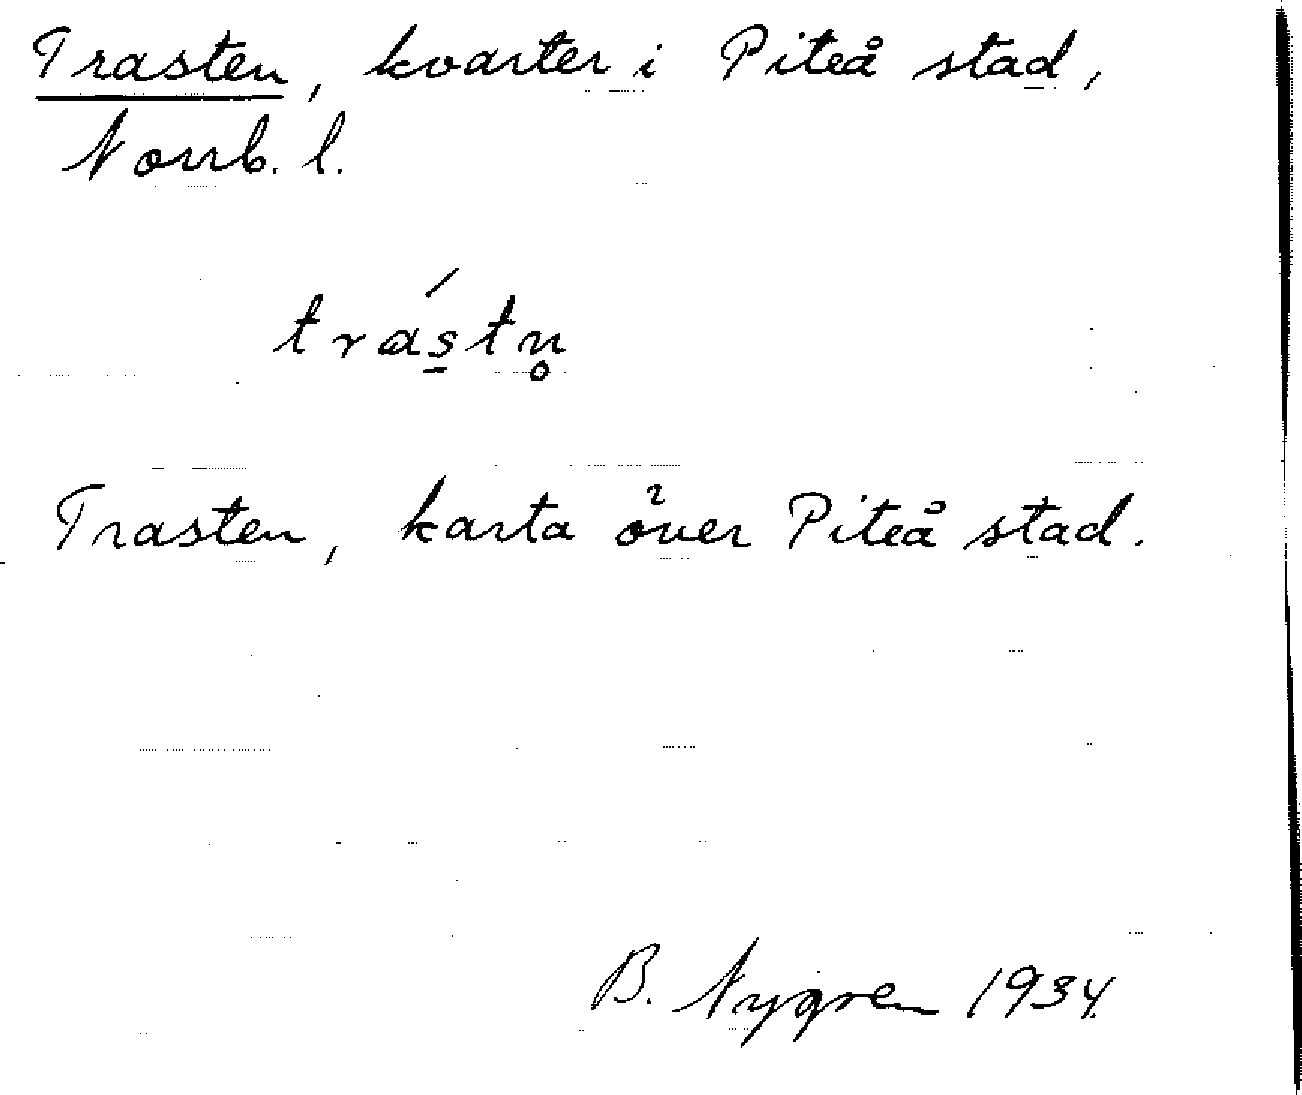 Trasten, kvarter i Piteå stad,
Norrb. l.
trás̠tn̥
Trasten, karta över Piteå stad.
B. Nygren 1934.